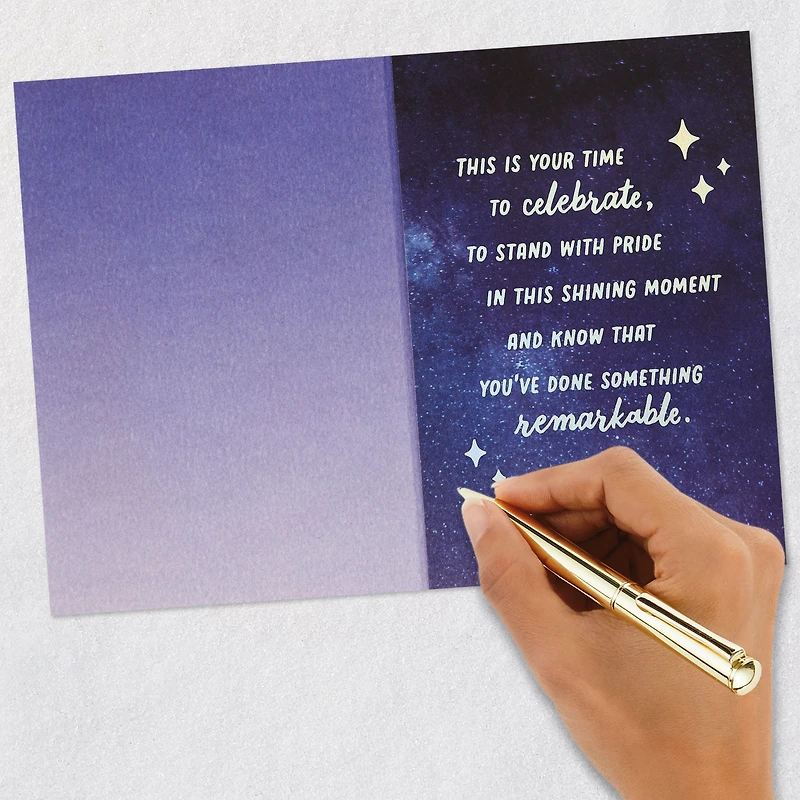 THIS IS YOUR TIME
TO celebrate,
TO STAND WITH PRIDE
IN THIS SHINING MOMENT
AND KNOW THAT
YOU'VE DONE SOMETHING
remarkable.